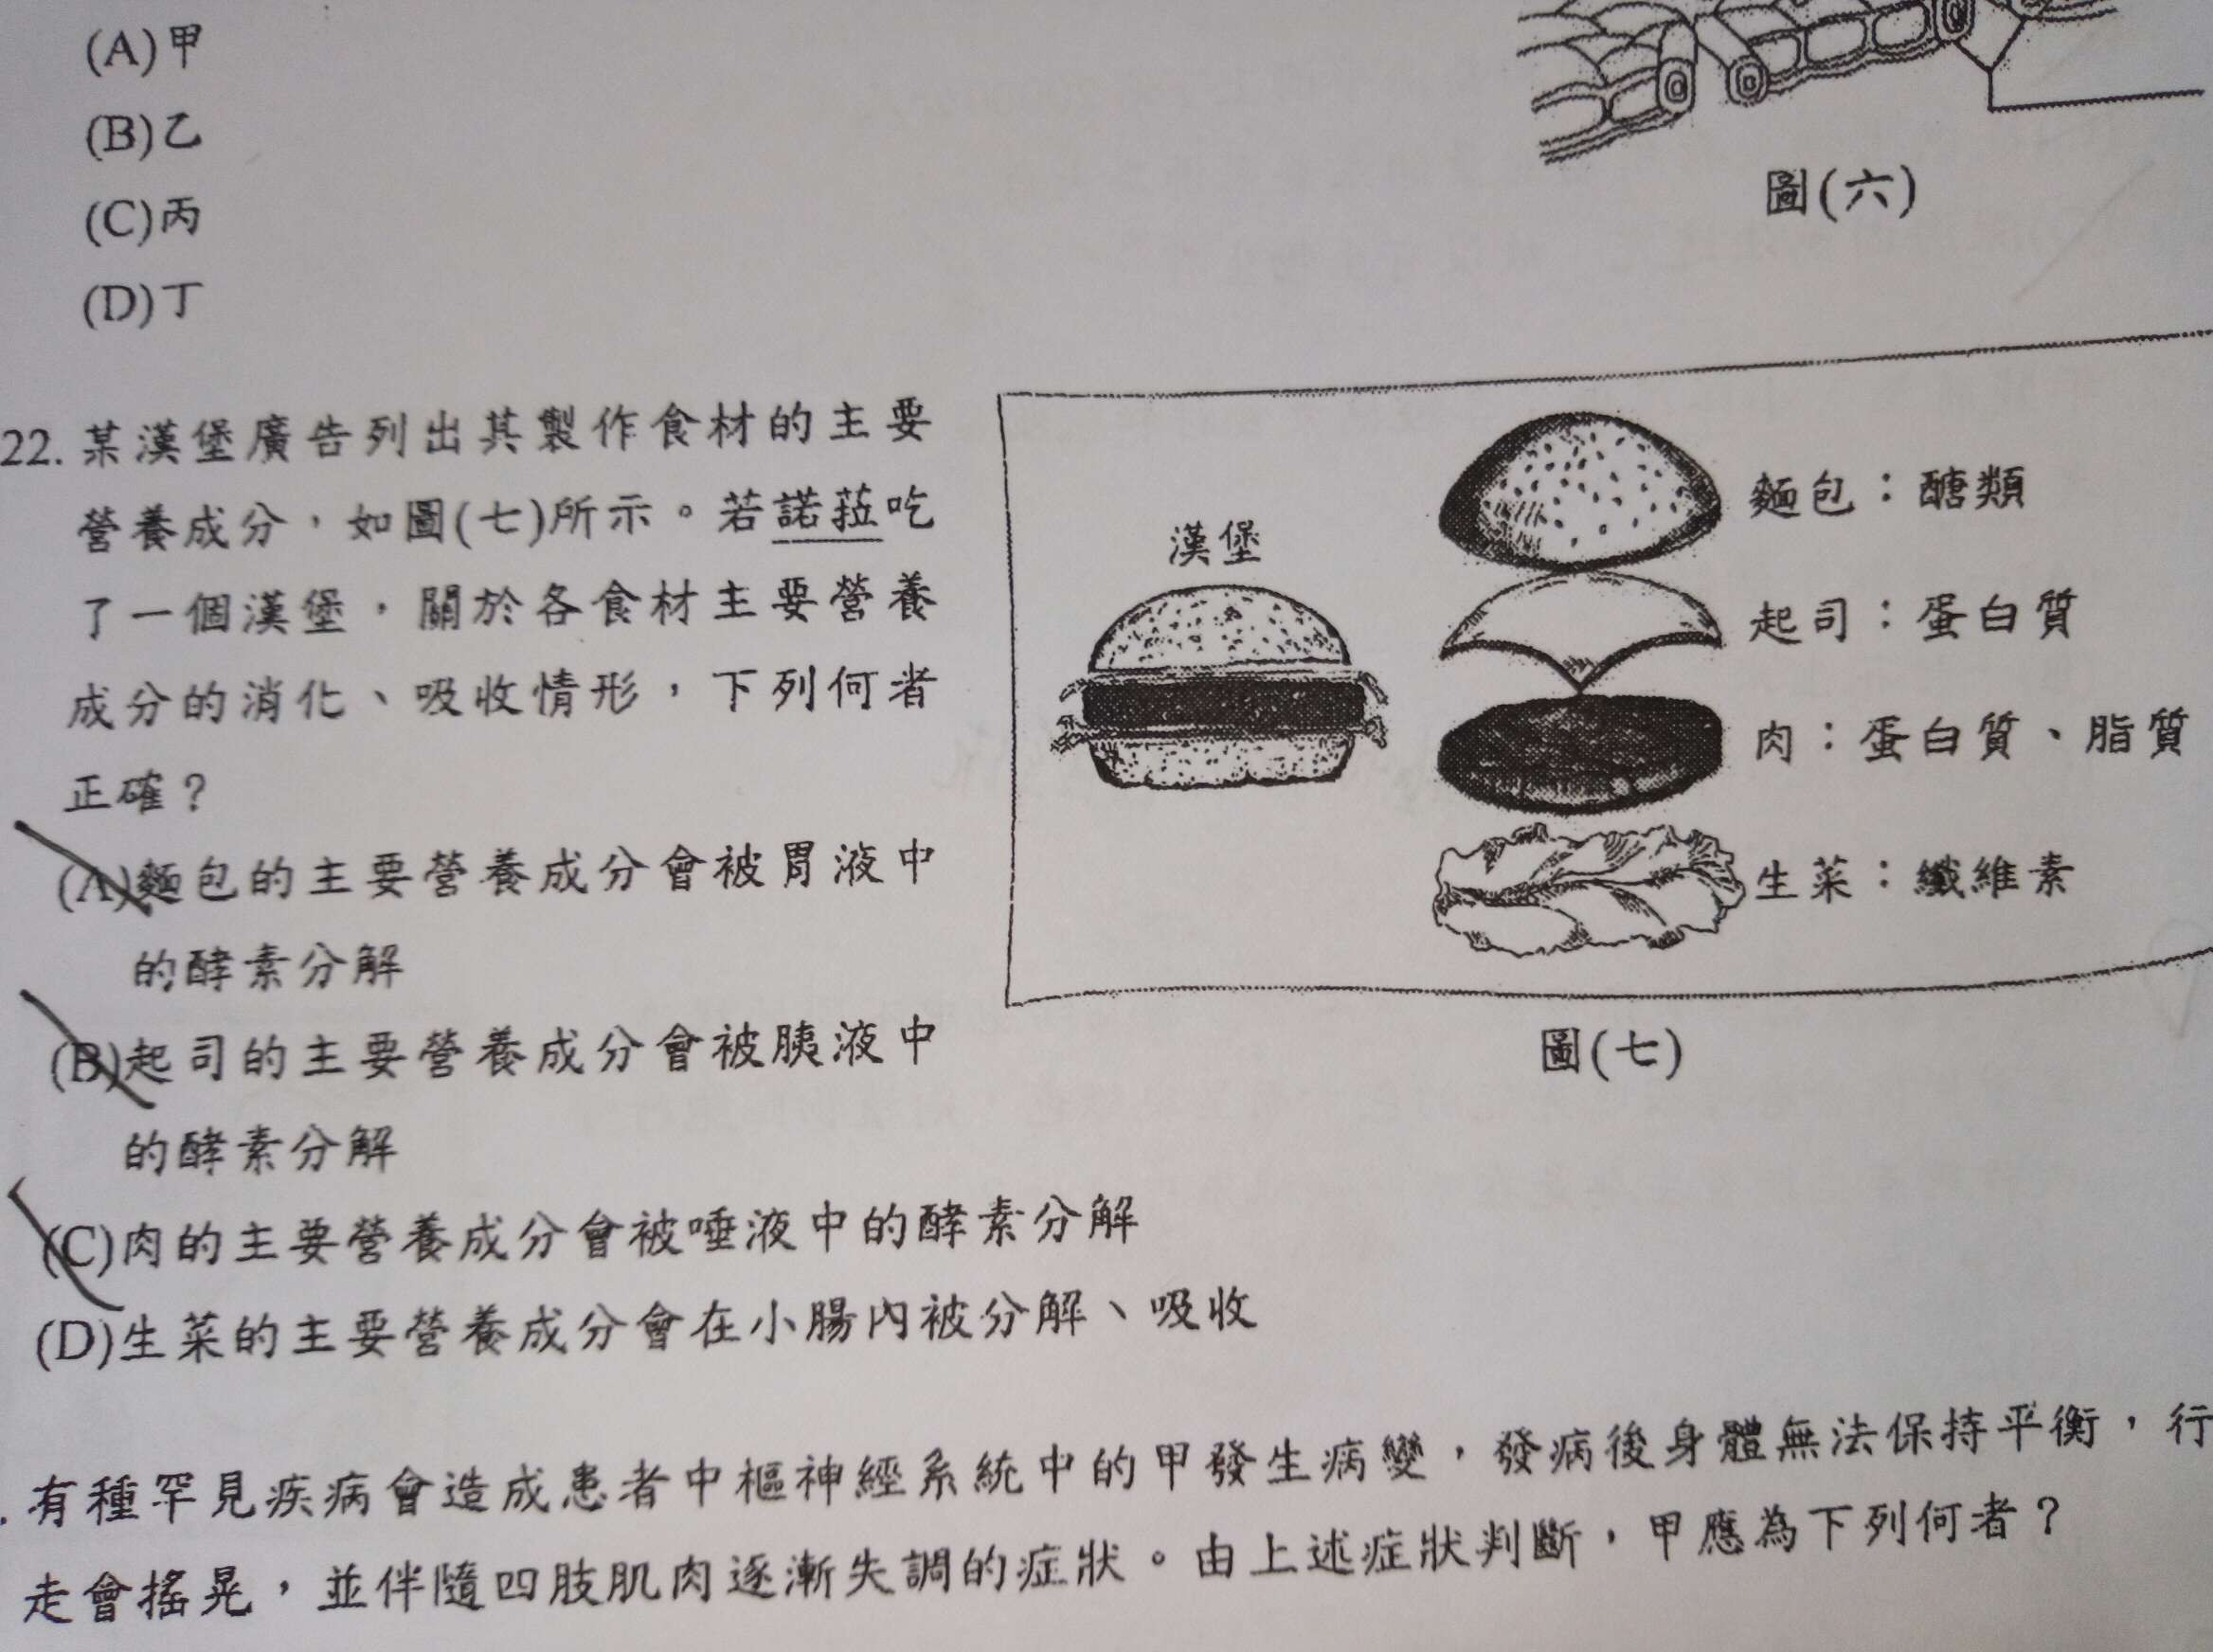 (A)甲
(B)乙
(C)丙
(D)丁
圖(六)
22. 某漢堡廣告列出其製作食材的主要
營養成分，如圖(七)所示。若諾菈吃
了一個漢堡，關於各食材主要營養
成分的消化、吸收情形，下列何者
正確？
(A)麵包的主要營養成分會被胃液中
的酵素分解
(B)起司的主要營養成分會被胰液中
的酵素分解
(C)肉的主要營養成分會被唾液中的酵素分解
(D)生菜的主要營養成分會在小腸內被分解、吸收
漢堡
麵包：醣類
起司：蛋白質
肉：蛋白質、脂質
生菜：纖維素
圖(七)
. 有種罕見疾病會造成患者中樞神經系統中的甲發生病變，發病後身體無法保持平衡，行
走會搖晃，並伴隨四肢肌肉逐漸失調的症狀。由上述症狀判斷，甲應為下列何者？